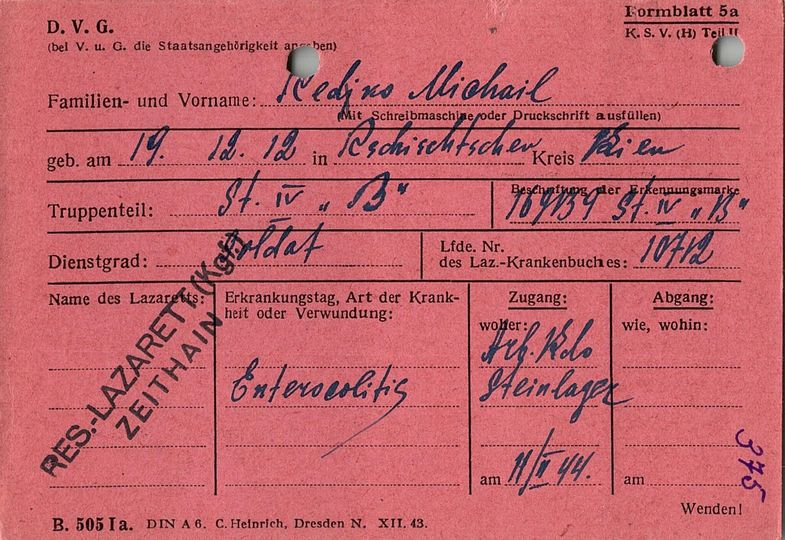 D. V. G.
(bei V. u. G. die Staatsangehörigkeit angeben)
Formblatt 5a
K. S. V. (H) Teil II
Familien- und Vorname: Redjko Michail
(Mit Schreibmaschine oder Druckschrift ausfüllen)
geb. am 19. 12. 12 in Rschischtschew Kreis Kiew
Truppenteil: St. IV „B"
Beschriftung der Erkennungsmarke
169139 St. IV „B"
Dienstgrad: Soldat
Lfde. Nr.
des Laz.-Krankenbuches: 10712
Name des Lazaretts:
RES.-LAZARETT (Kgf.)
ZEITHAIN
Erkrankungstag, Art der Krank-
heit oder Verwundung:
Enterocolitis
Zugang:
woher:
Arb. Kdo
Steinlager
am 11/II 44.
Abgang:
wie, wohin:
am
375
Wenden!
B. 505 Ia. DIN A 6. C. Heinrich, Dresden N. XII. 43.